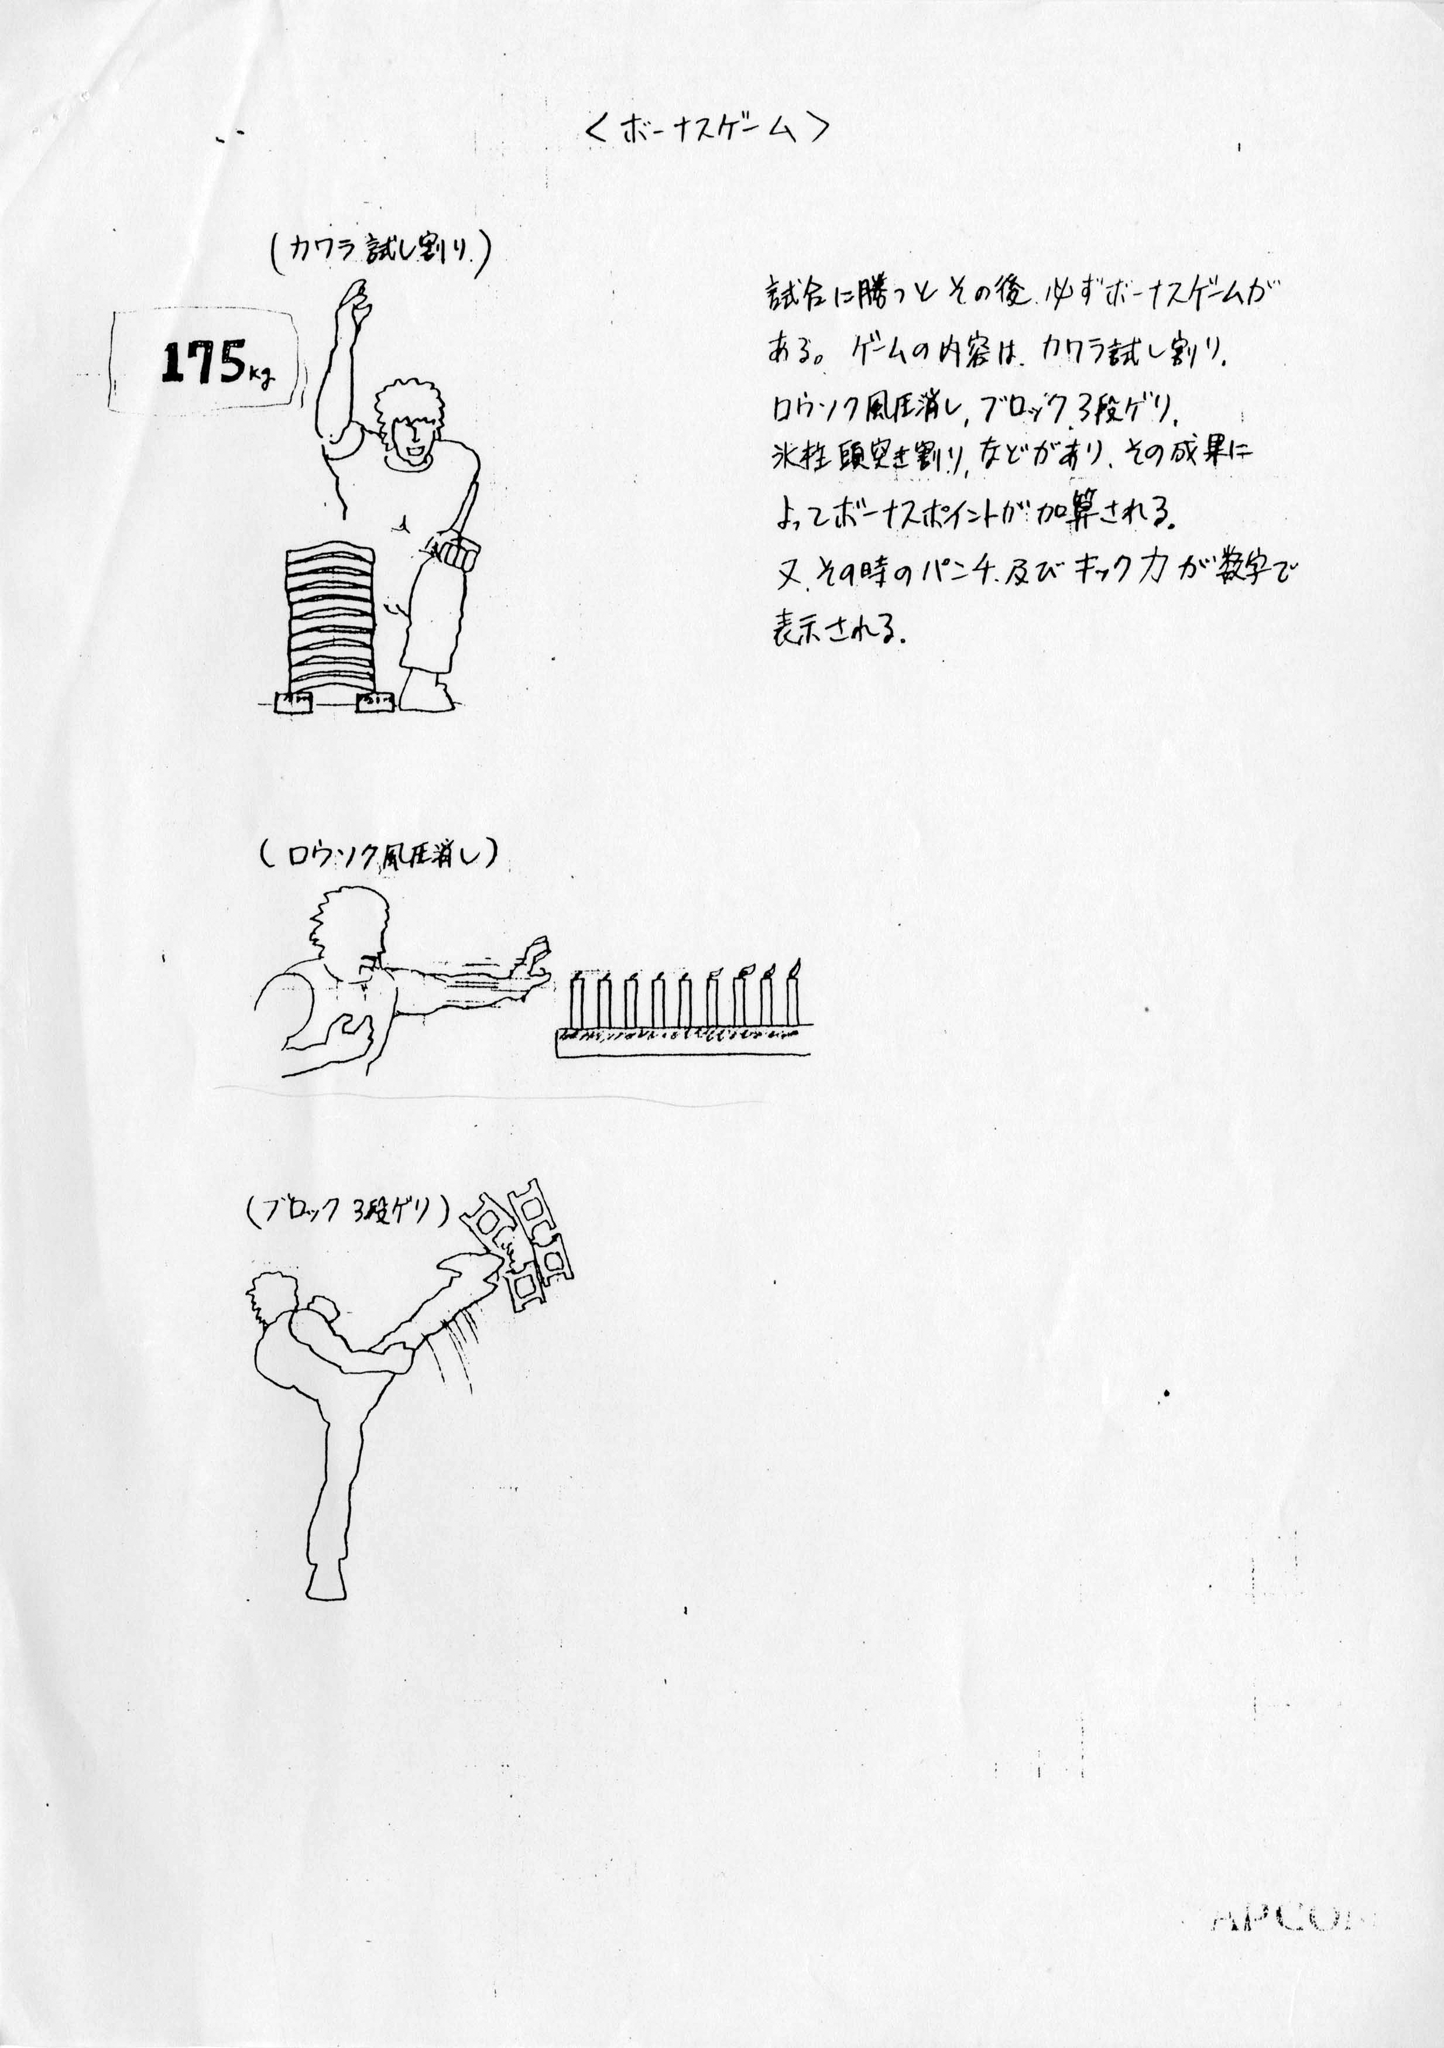 <ボーナスゲーム>
(カワラ試し割り)
175kg
試合に勝つとその後、必ずボーナスゲームが
ある。ゲームの内容は、カワラ試し割り、
ロウソク風圧消し、ブロック3段ゲリ、
氷柱頭突き割り、などがあり、その成果に
よってボーナスポイントが加算される。
又、その時のパンチ、及びキック力が数字で
表示される。
(ロウソク風圧消し)
(ブロック3段ゲリ)
CAPCOM